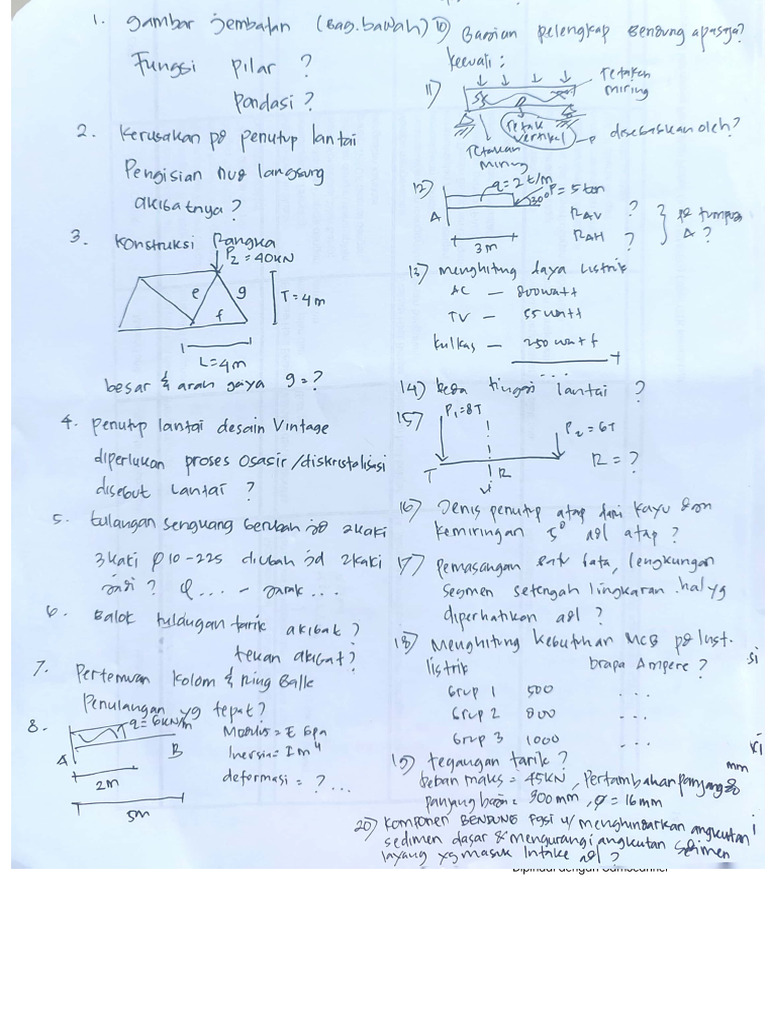 1. gambar jembatan (Bag.bawah)
Fungsi pilar ?
Pondasi ?
2. Kerusakan pd penutup lantai
Pengisian nug langsung
akibatnya ?
3. Konstruksi Rangka
P2 = 40KN
e g
f
T = 4m
L=4m
besar & arah gaya g = ?
4. Penutup lantai desain Vintage
diperlukan proses osasir/diskristalisasi
disebut lantai ?
5. tulangan sengkang berubah jd 2kaki
3kaki Ø10-225 diubah jd 2kaki
jadi ? Ø.... - jarak ...
6. Balok tulangan tarik akibat ?
tekan akibat ?
7. Pertemuan Kolom & Ring Balk
Penulangan yg tepat ?
8.
q= 6KN/m
A B
2m
5m
Modulus = E Gpa
Inersia = I m⁴
deformasi = ? ...
10) Bagian pelengkap Bendung apa saja?
kecuali :
11)
retakan
miring
SK
retak
vertikel
disebabkan oleh?
retakan
miring
12)
q= 2 t/m
30° P= 5 ton
A
3m
RAV ?
RAH ?
pd tumpuan
A ?
13) menghitung daya listrik
AC — 800 watt
TV — 55 watt
Kulkas — 250 watt
+
...
14) beda tinggi lantai ?
15)
P1=8T
P2 = 6T
R
R = ?
16) Jenis penutup atap dari kayu dan
kemiringan 5° adl atap ?
17) Pemasangan bata, lengkungan
segmen setengah lingkaran. hal yg
diperhatikan adl ?
18) Menghitung kebutuhan MCB pd Inst.
listrik brapa Ampere ?
Grup 1 500 ...
Grup 2 800 ...
Grup 3 1000 ...
19) tegangan tarik ?
mm
Beban maks = 45KN, Pertambahan panjang
panjang = 300 mm, Ø = 16 mm
20) Komponen BENDUNG u/ menghindarkan angkutan
sedimen dasar & mengurangi angkutan sedimen
layang yg masuk Intake adl ?
Dipindai dengan CamScanner